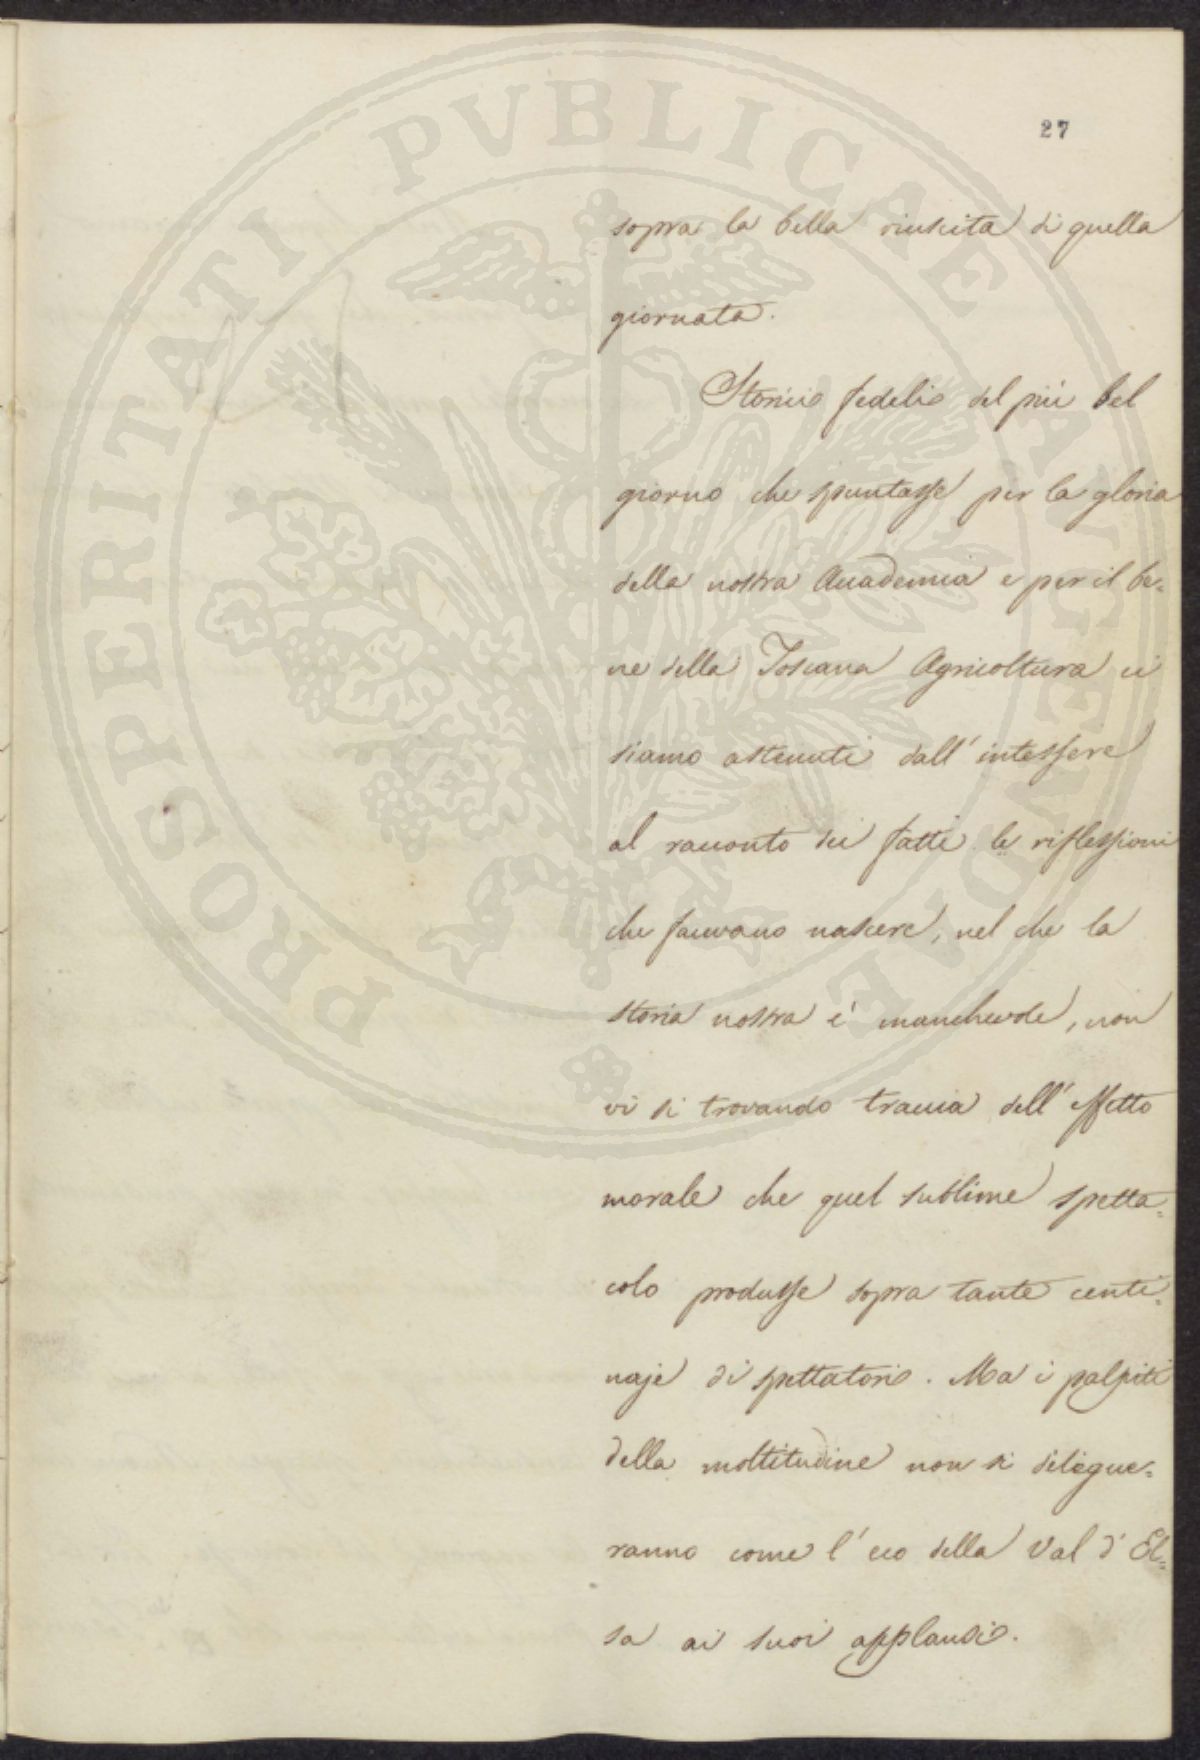 PROSPERITATI PVBLICAE AVGENDAE
27
sopra la bella riuscita di quella
giornata.
Storici fedeli del più bel
giorno che spuntasse per la gloria
della nostra Accademia e per il be=
ne della Toscana Agricoltura ci
siamo astenuti dall' intessere
al racconto dei fatti le riflessioni
che facevano nascere, nel che la
storia nostra è manchevole, non
vi si trovando traccia dell' effetto
morale che quel sublime spetta=
colo produsse sopra tante centi=
naje di spettatori. Ma i palpiti
della moltitudine non si dilegue=
ranno come l' eco della Val d' El=
sa ai suoi applausi.